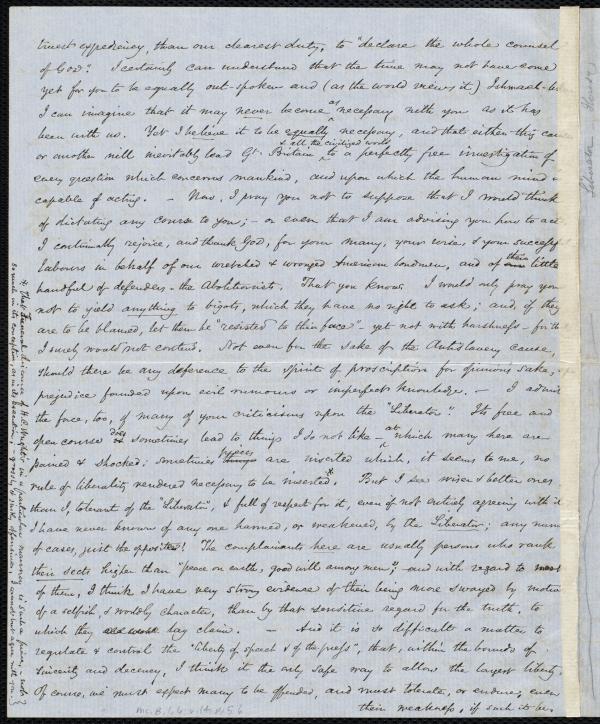 truest expediency, than our clearest duty, to "declare the whole counsel
of God". I certainly can understand that the time may not have come
yet for you to be equally out-spoken and (as the world views it) Ishmael-
I can imagine that it may never become as necessary with you as it has
been with us. Yet I believe it to be equally necessary, and that either this
or another will inevitably lead Gt. Britain, & all the civilized world, to a perfectly free investigation of
every question which concerns mankind, and upon which the human mind is
capable of acting. - Now, I pray you not to suppose that I would think
of dictating any course to you; - or even that I am advising you how to act
I continually rejoice, and thank God, for your many, your wise, & your successful
labours in behalf of our wretched & wronged American bondmen, and of their little
handful of defenders - the Abolitionists. That you know. I would only pray you
not to yield anything to bigots, which they have no right to ask; and, if they
are to be blamed, let them be "resisted to their face" - yet not with harshness - for that
I surely would not contend. Not even for the sake of the Antislavery cause,
should there be any deference to the spirit of proscription for opinions sake,
prejudice founded upon evil rumours or imperfect knowledge. - I admit
the force, too, of many of your criticisms upon the "Liberator". Its free and
open course does sometimes lead to things I do not like - at which many here are
pained & shocked; sometimes pieces are inserted which, it seems to me, no
rule of liberality rendered necessary to be inserted.* But I see wiser & better ones
than I, tolerant of the "Liberator", & full of respect for it, even if not entirely agreeing with it
I have never known of any one harmed, or weakened, by the Liberator; any number
of cases, just the opposite! The complainants here are usually persons who rank
their sects higher than "peace on earth, good will among men", - and with regard to most
of them, I think I have very strong evidence of their being more swayed by motives
of a selfish & worldly character, than by that sensitive regard for the truth, to
which they lay claim. - And it is so difficult a matter to
regulate & control the "liberty of speech & of the press", that, within the bounds of
sincerity and decency, I think it the only safe way to allow the largest liberty.
Of course, we must expect many to be offended, and must tolerate, or endure, even
their weakness, if such it be.
* That funeral discourse of H.C. Wright's in a particular manner is such a piece,
so much in its conception, or in its execution,
Ms. B. 1.6 v.
Liberator